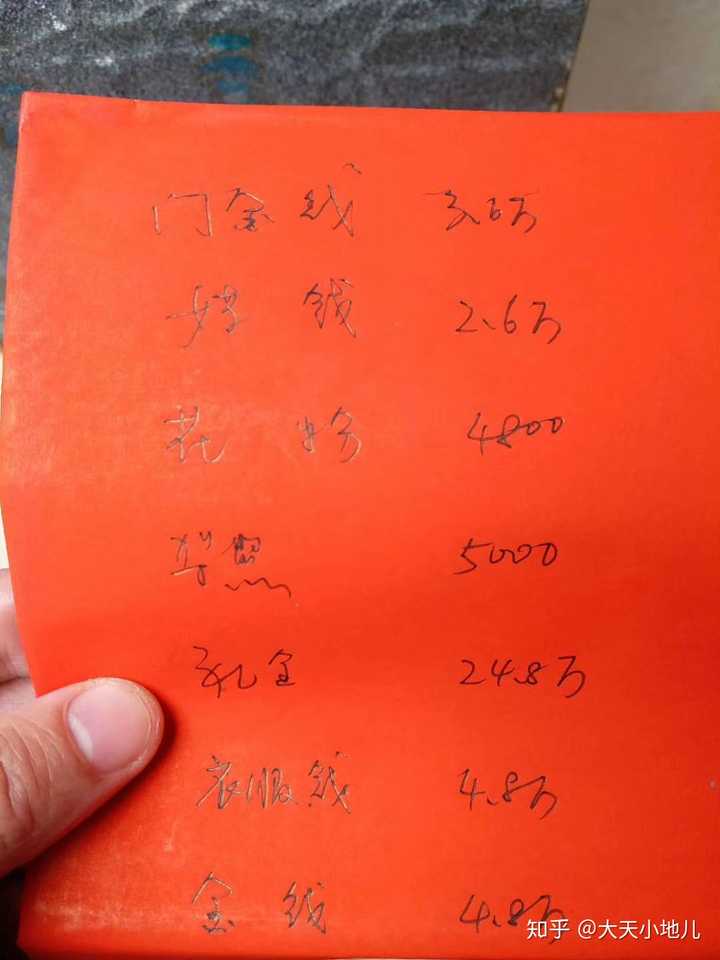 门金钱 3.6万
钱 2.6万
花粉 4800
5000
礼金 24.8万
衣服钱 4.8万
金钱 4.8万
知乎 @大天小地儿